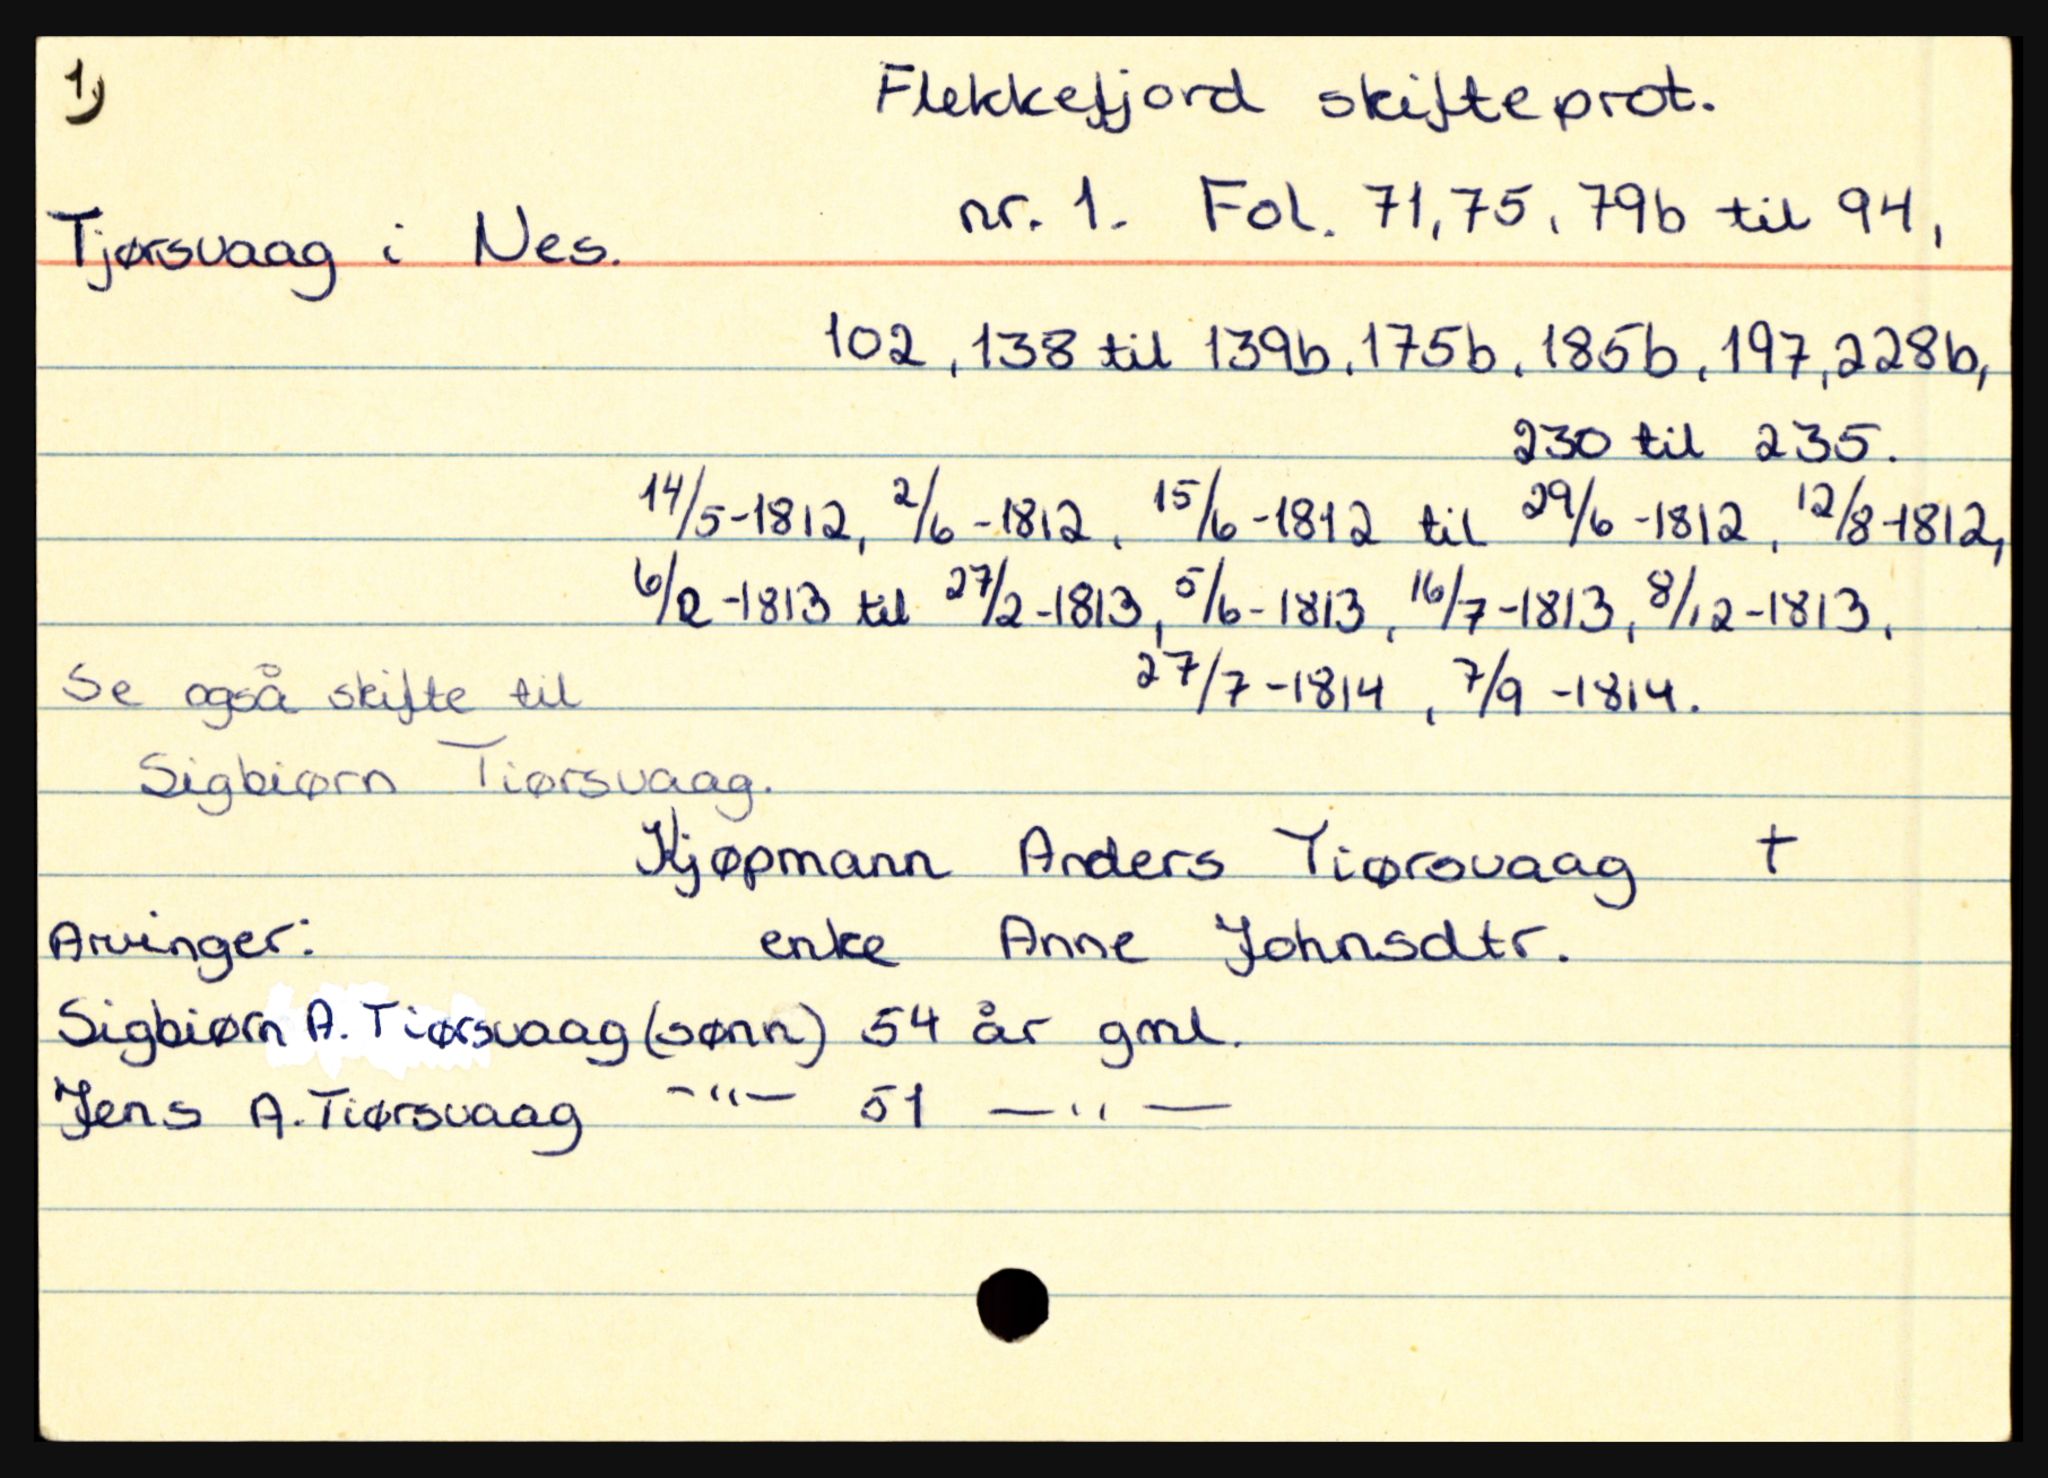 1)
Flekkefjord skifteprot.
nr. 1. Fol. 71, 75, 79b til 94,
Tjørsvaag i Nes.
102, 138 til 139b, 175b, 185b, 197, 228b,
230 til 235.
14/5-1812, 2/6-1812, 15/6-1812 til 29/6-1812, 12/8-1812,
6/2-1813 til 27/2-1813, 5/6-1813, 16/7-1813, 8/12-1813,
27/7-1814, 7/9-1814.
Se også skifte til
Sigbiørn Tiørsvaag.
Kjøpmann Anders Tiørsvaag †
Arvinger: enke Anne Johnsdtr.
Sigbiørn A. Tiørsvaag (sønn) 54 år gml.
Jens A. Tiørsvaag -"- 51 -"-